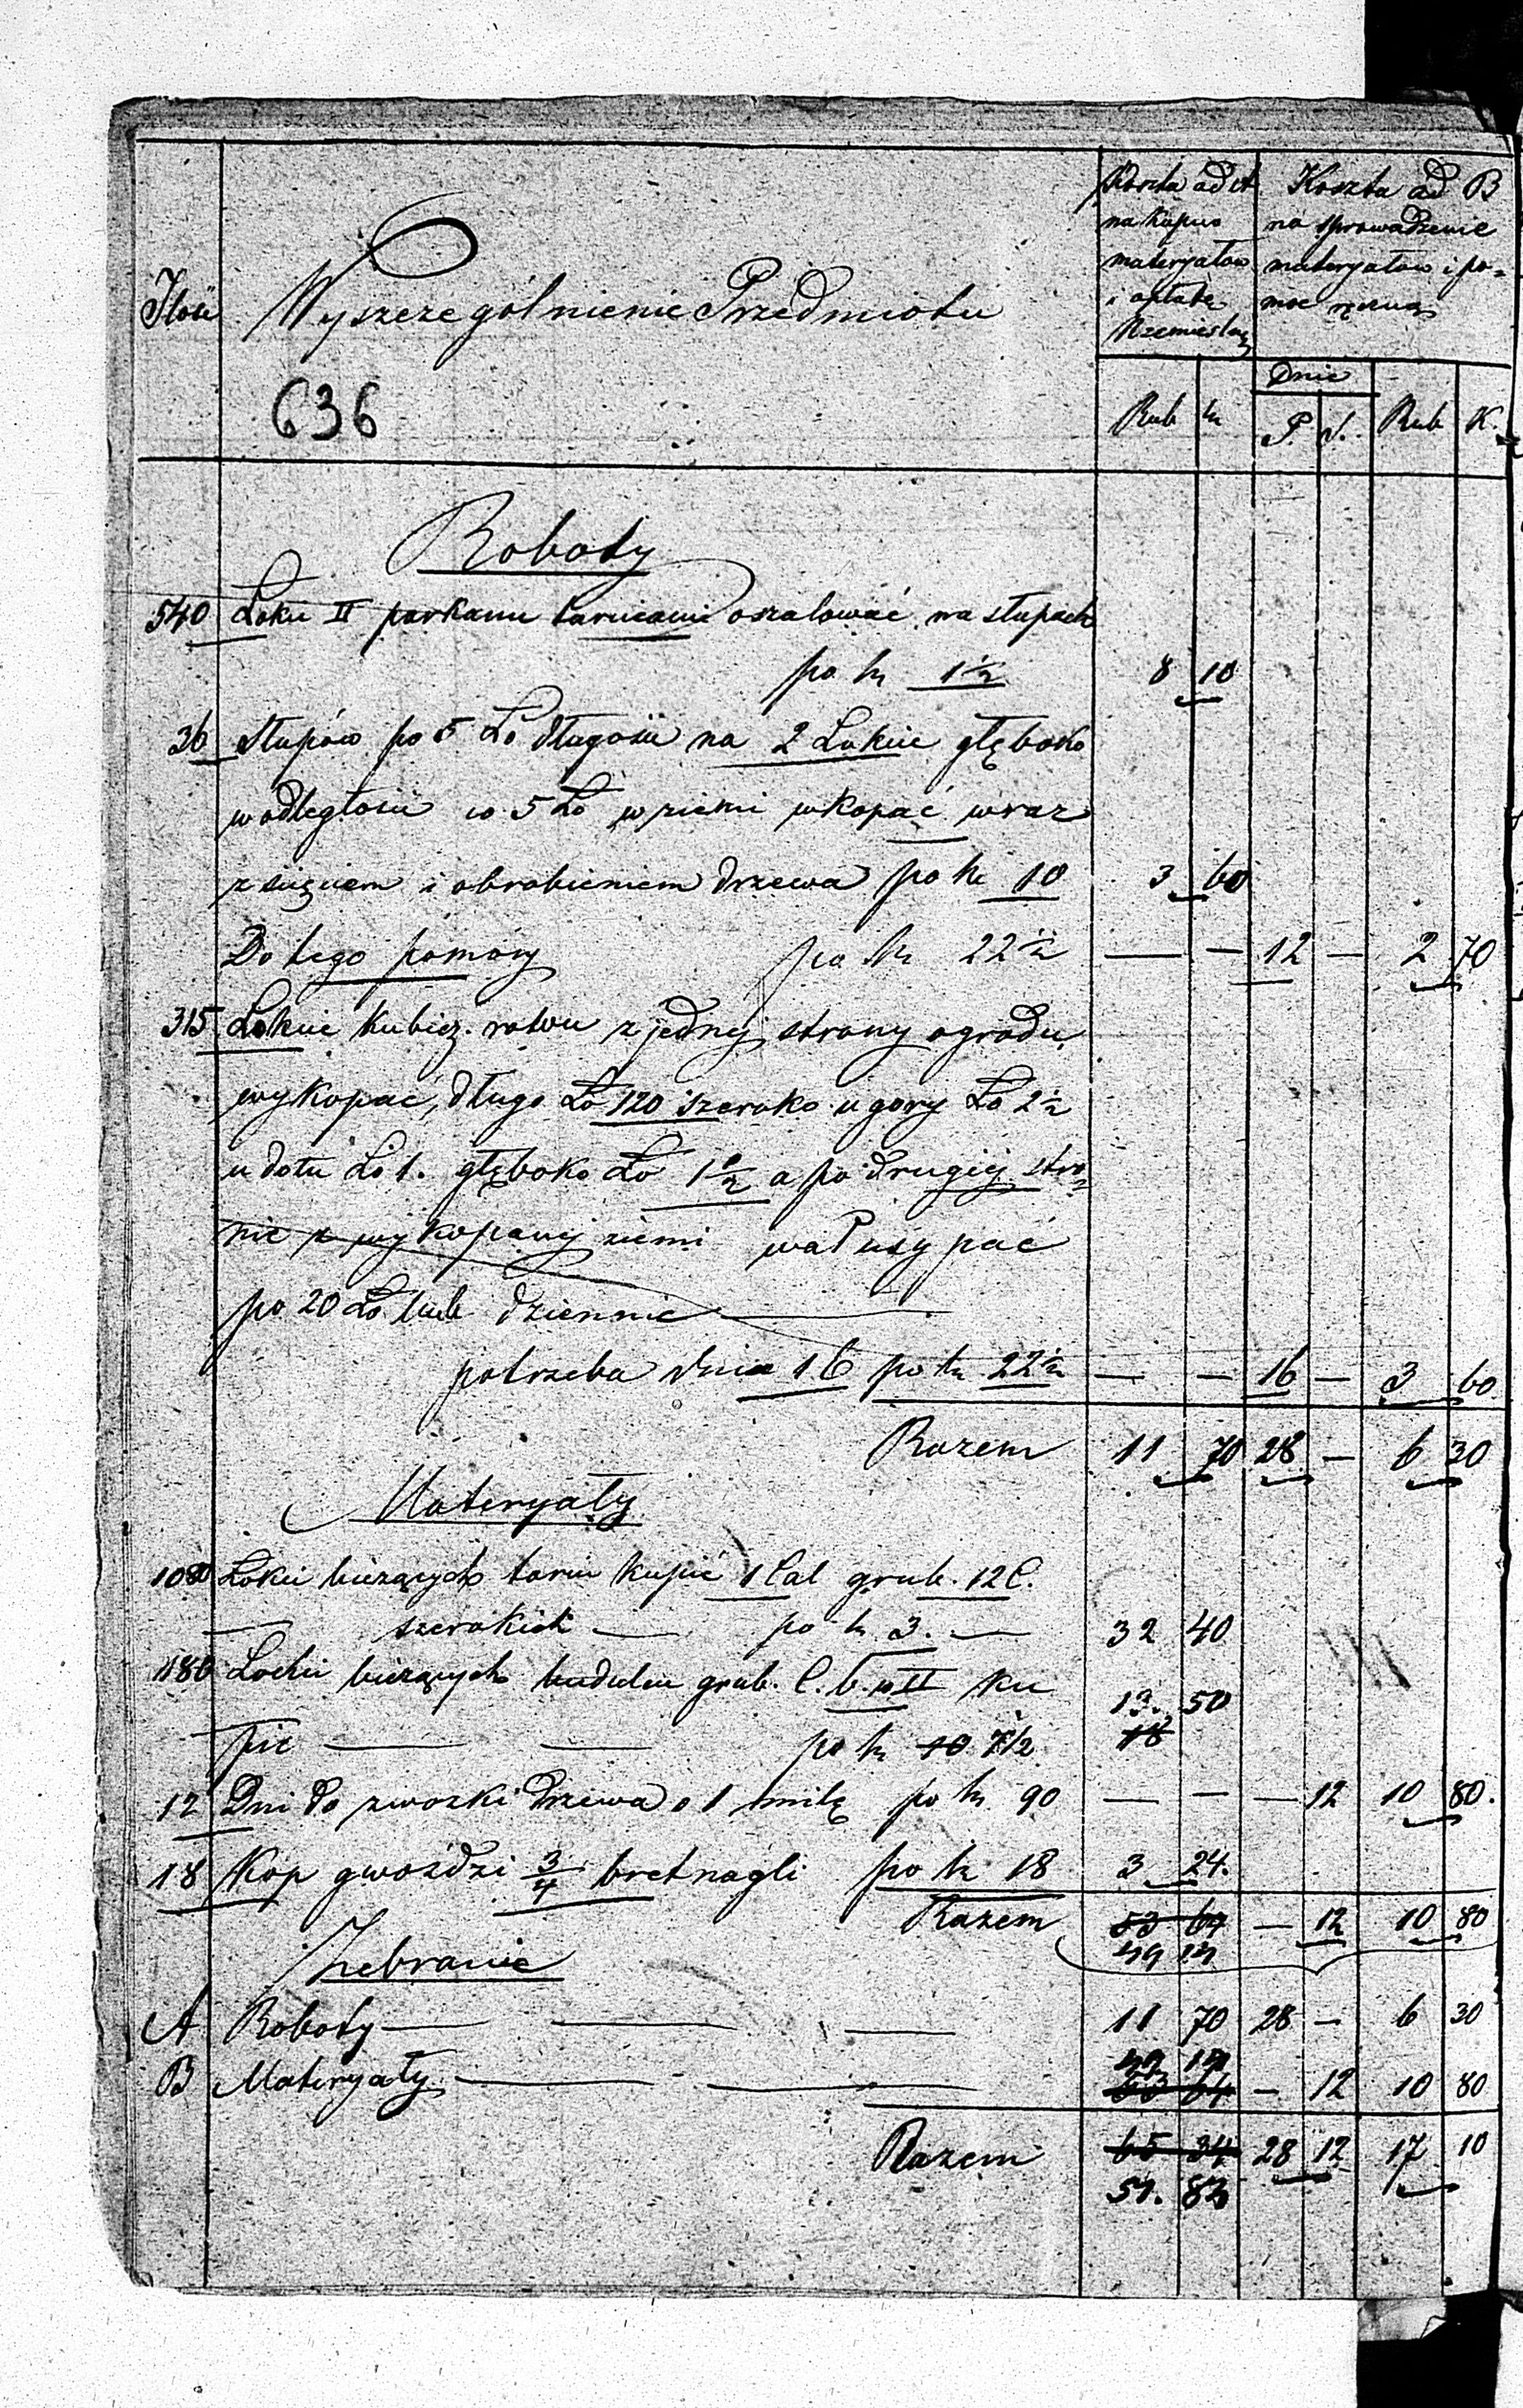 Ilość
Wyszczególnienie Przedmiotu
636
Koszta ad A
na kupno
materyałów
i opłatę
Rzemieślnika
Koszta ad B
na sprowadzenie
materyałów i po=
moc ręczną
Dnie
Rub k P. S. Rub K.
Roboty
540 Łokci II parkanu tarcicami oszalować na słupach
po k 1½ 8 10
36 słupów po 5 Ło długości na 2 Łokcie głęboko
w odległości co 5 Ło w ziemi wkopać wraz
z sięciem i obrobieniem drzewa po k 10 3 60
Do tego pomocy po k 22½ — — 12 — 2 70
315 Łokcie kubicz. rowu z jednej strony ogrodu
wykopać, długo Ło 120 szeroko u gory Ło 2½
u dołu Ło 1. głęboko Ło 1½ a po drugiej stro=
nie z wykopanej ziemi wał usypać
po 20 Ło kub dziennie —
potrzeba dnia 16 po k 22½ — — 16 — 3 60
Razem 11 70 28 — 6 30
Materyały
1080 Łokci bieżących tarcic kupić 1 Cal grub. 12 C.
— szerokich — po k 3. — 32 40
180 Łokci bieżących budulcu grub. C. 6. w II ku
13. 50
pić — — po k 10 7½ 18
12 Dni do zwozki drzewa o 1 milę po k 90 — — — 12 10 80.
18 Kop gwoździ ¾ bretnagli po k 18 3 24.
Razem 53 64 — 12 10 80
49 14
Zebranie
A Roboty — — — 11 70 28 — 6 30
49 14
B Materyały — — 53 64 — 12 10 80
Razem 65 34 28 12 17 10